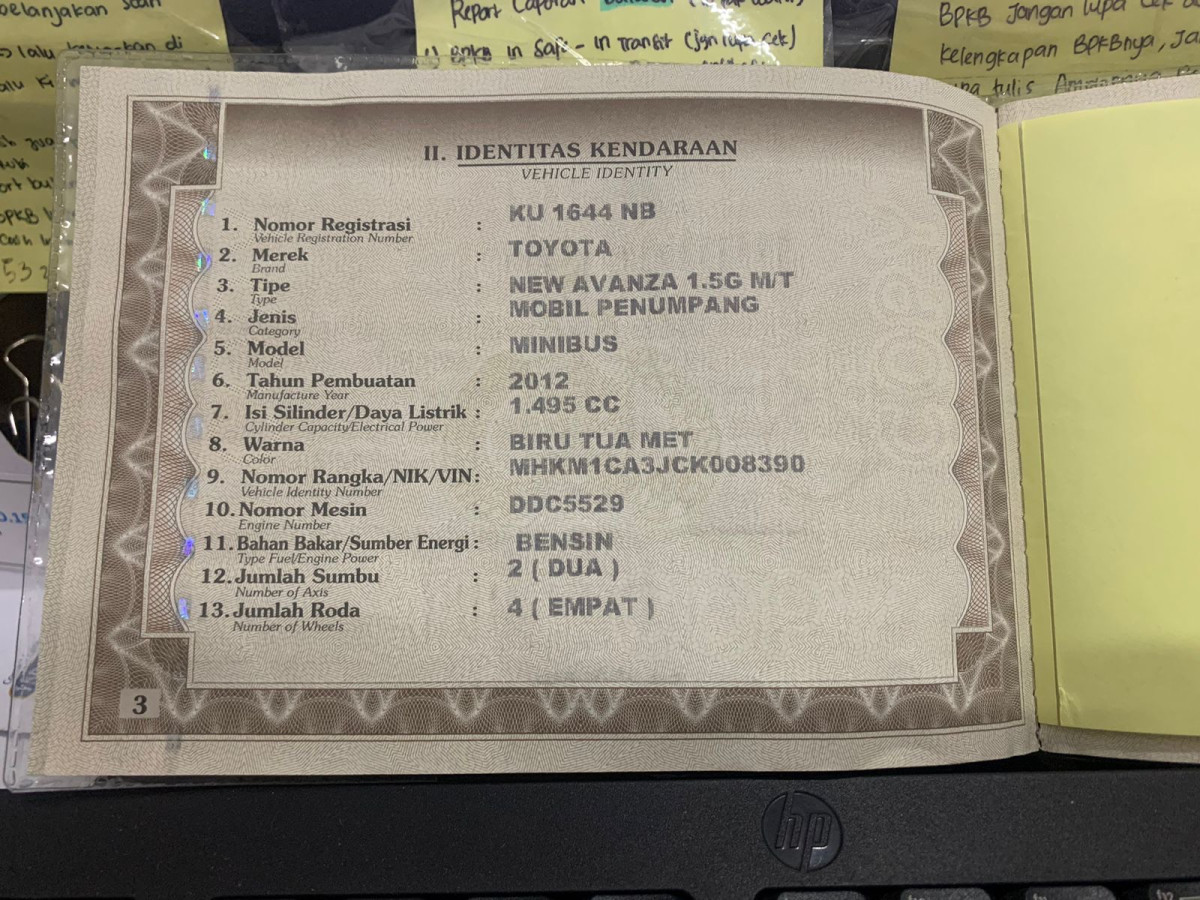 pelanjakan saat
Report Laporan
1) BPKB In Safe - In Transit (jgn lupa cek)
BPKB Jangan lupa cek
kelengkapan BPKBnya, Ja
tulis
II. IDENTITAS KENDARAAN
VEHICLE IDENTITY
1. Nomor Registrasi : KU 1644 NB
Vehicle Registration Number
2. Merek : TOYOTA
Brand
3. Tipe : NEW AVANZA 1.5G M/T
Type
4. Jenis : MOBIL PENUMPANG
Category
5. Model : MINIBUS
Model
6. Tahun Pembuatan : 2012
Manufacture Year
7. Isi Silinder/Daya Listrik : 1.495 CC
Cylinder Capacity/Electrical Power
8. Warna : BIRU TUA MET
Color
9. Nomor Rangka/NIK/VIN: MHKM1CA3JCK008390
Vehicle Identity Number
10. Nomor Mesin : DDC5529
Engine Number
11. Bahan Bakar/Sumber Energi : BENSIN
Type Fuel/Engine Power
12. Jumlah Sumbu : 2 ( DUA )
Number of Axis
13. Jumlah Roda : 4 ( EMPAT )
Number of Wheels
3
hp